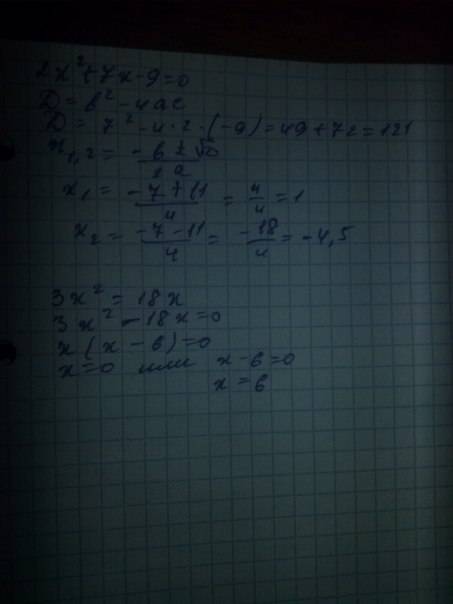 2x²+7x-9=0
D=b²-4ac
D=7²-4·2·(-9)=49+72=121
x₁,₂=(-b±√D)/2a
x₁=(-7+11)/4=4/4=1
x₂=(-7-11)/4=-18/4=-4,5
3x²=18x
3x²-18x=0
x(x-6)=0
x=0 или x-6=0
x=6